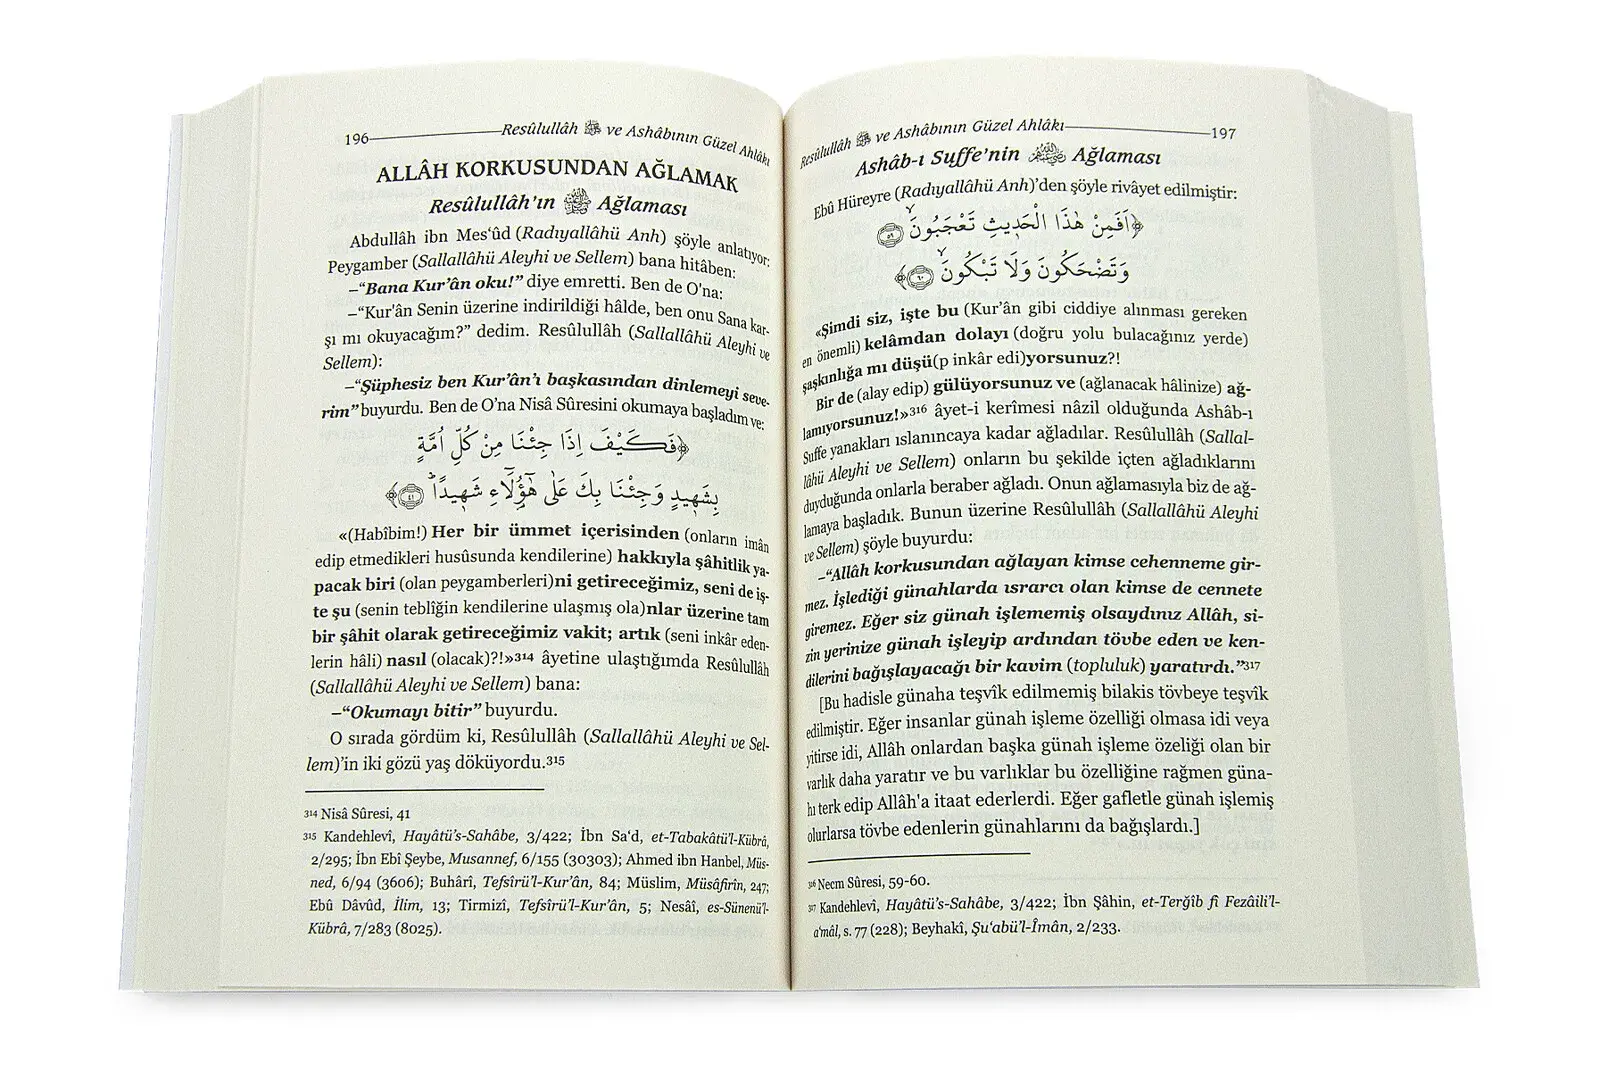 196 Resûlullâh ﷺ ve Ashâbının Güzel Ahlâkı
ALLÂH KORKUSUNDAN AĞLAMAK
Resûlullâh'ın ﷺ Ağlaması
Abdullâh ibn Mes‘ûd (Radıyallâhü Anh) şöyle anlatıyor:
Peygamber (Sallallâhü Aleyhi ve Sellem) bana hitâben:
–“Bana Kur’ân oku!” diye emretti. Ben de O'na:
–“Kur'ân Senin üzerine indirildiği hâlde, ben onu Sana kar-
şı mı okuyacağım?” dedim. Resûlullâh (Sallallâhü Aleyhi ve
Sellem):
–“Şüphesiz ben Kur’ân’ı başkasından dinlemeyi seve-
rim” buyurdu. Ben de O’na Nisâ Sûresini okumaya başladım ve:
﴿فَكَيْفَ اِذَا جِئْنَا مِنْ كُلِّ اُمَّةٍ
بِشَهٖيدٍ وَجِئْنَا بِكَ عَلٰى هٰٓؤُ۬لَٓاءِ شَهٖيدًاۜ ﴿٤١﴾
«(Habîbim!) Her bir ümmet içerisinden (onların imân
edip etmedikleri husûsunda kendilerine) hakkıyla şâhitlik ya-
pacak biri (olan peygamberleri)ni getireceğimiz, seni de iş-
te şu (senin teblîğin kendilerine ulaşmış ola)nlar üzerine tam
bir şâhit olarak getireceğimiz vakit; artık (seni inkâr eden-
lerin hâli) nasıl (olacak)?!»³¹⁴ âyetine ulaştığımda Resûlullâh
(Sallallâhü Aleyhi ve Sellem) bana:
–“Okumayı bitir” buyurdu.
O sırada gördüm ki, Resûlullâh (Sallallâhü Aleyhi ve Sel-
lem)’in iki gözü yaş döküyordu.³¹⁵
³¹⁴ Nisâ Sûresi, 41
³¹⁵ Kandehlevî, Hayâtü’s-Sahâbe, 3/422; İbn Sa‘d, et-Tabakâtü’l-Kübrâ,
2/295; İbn Ebî Şeybe, Musannef, 6/155 (30303); Ahmed ibn Hanbel, Müs-
ned, 6/94 (3606); Buhârî, Tefsîrü’l-Kur’ân, 84; Müslim, Müsâfirîn, 247;
Ebû Dâvûd, İlim, 13; Tirmizî, Tefsîrü’l-Kur’ân, 5; Nesâî, es-Sünenü’l-
Kübrâ, 7/283 (8025).
Resûlullâh ﷺ ve Ashâbının Güzel Ahlâkı 197
Ashâb-ı Suffe’nin Ağlaması
Ebû Hüreyre (Radıyallâhü Anh)’den şöyle rivâyet edilmiştir:
﴿اَفَمِنْ هٰذَا الْحَدٖيثِ تَعْجَبُونَۙ ﴿٥٩﴾
وَتَضْحَكُونَ وَلَا تَبْكُونَۙ ﴿٦٠﴾
«Şimdi siz, işte bu (Kur’ân gibi ciddiye alınması gereken
en önemli) kelâmdan dolayı (doğru yolu bulacağınız yerde)
şaşkınlığa mı düşü(p inkâr edi)yorsunuz?!
Bir de (alay edip) gülüyorsunuz ve (ağlanacak hâlinize) ağ-
lamıyorsunuz!»³¹⁶ âyet-i kerîmesi nâzil olduğunda Ashâb-ı
Suffe yanakları ıslanıncaya kadar ağladılar. Resûlullâh (Sallal-
lâhü Aleyhi ve Sellem) onların bu şekilde içten ağladıklarını
duyduğunda onlarla beraber ağladı. Onun ağlamasıyla biz de ağ-
lamaya başladık. Bunun üzerine Resûlullâh (Sallallâhü Aleyhi
ve Sellem) şöyle buyurdu:
–“Allâh korkusundan ağlayan kimse cehenneme gir-
mez. İşlediği günahlarda ısrarcı olan kimse de cennete
giremez. Eğer siz günah işlememiş olsaydınız Allâh, si-
zin yerinize günah işleyip ardından tövbe eden ve ken-
dilerini bağışlayacağı bir kavim (topluluk) yaratırdı.”³¹⁷
[Bu hadisle günaha teşvîk edilmemiş bilakis tövbeye teşvîk
edilmiştir. Eğer insanlar günah işleme özelliği olmasa idi veya
yitirse idi, Allâh onlardan başka günah işleme özeliği olan bir
varlık daha yaratır ve bu varlıklar bu özelliğine rağmen güna-
hı terk edip Allâh'a itaat ederlerdi. Eğer gafletle günah işlemiş
olurlarsa tövbe edenlerin günahlarını da bağışlardı.]
³¹⁶ Necm Sûresi, 59-60.
³¹⁷ Kandehlevî, Hayâtü’s-Sahâbe, 3/422; İbn Şâhin, et-Terğîb fî Fezâili’l-
a‘mâl, s. 77 (228); Beyhakî, Şu‘abü’l-Îmân, 2/233.